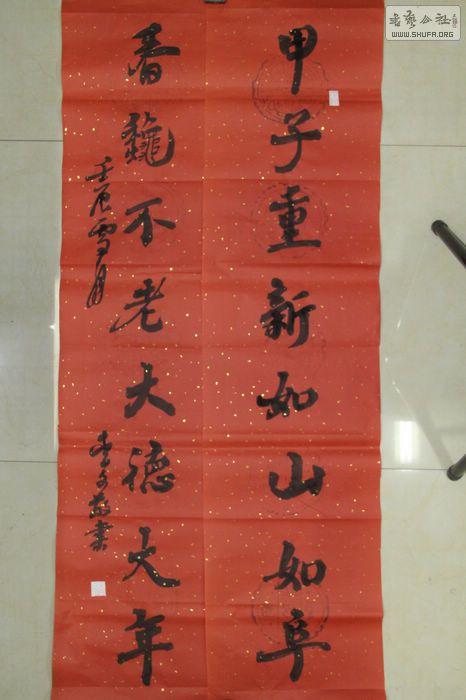 甲子重新如山如阜
春龝不老大德大年
壬辰雪月
李文書
書藝公社
WWW.SHUFA.ORG